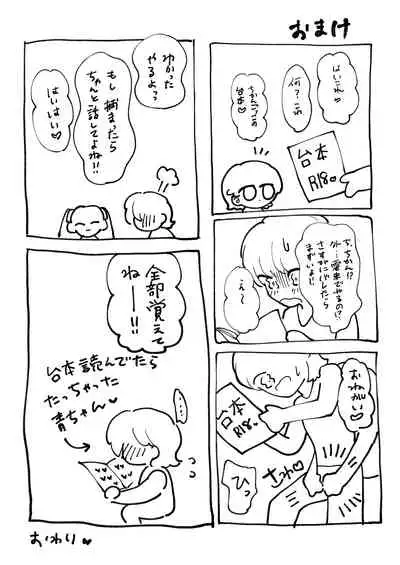 おまけ
はいこれ♡
何？これ
ちかんプレイの
台本♡
台本
R18♡
ち、ちかん!?
外…電車でやるの!?
さすがにバレたら
まずいよ…
え〜
おねがい♡
台本
R18♡
さわ♡
ひっ
わかった
やるよっ
もし捕まったら
ちゃんと話してよね!!
はいはい♡
全部覚えて
ねー!!
台本読んでたら
たっちゃった
青ちゃん♡
おわり♡